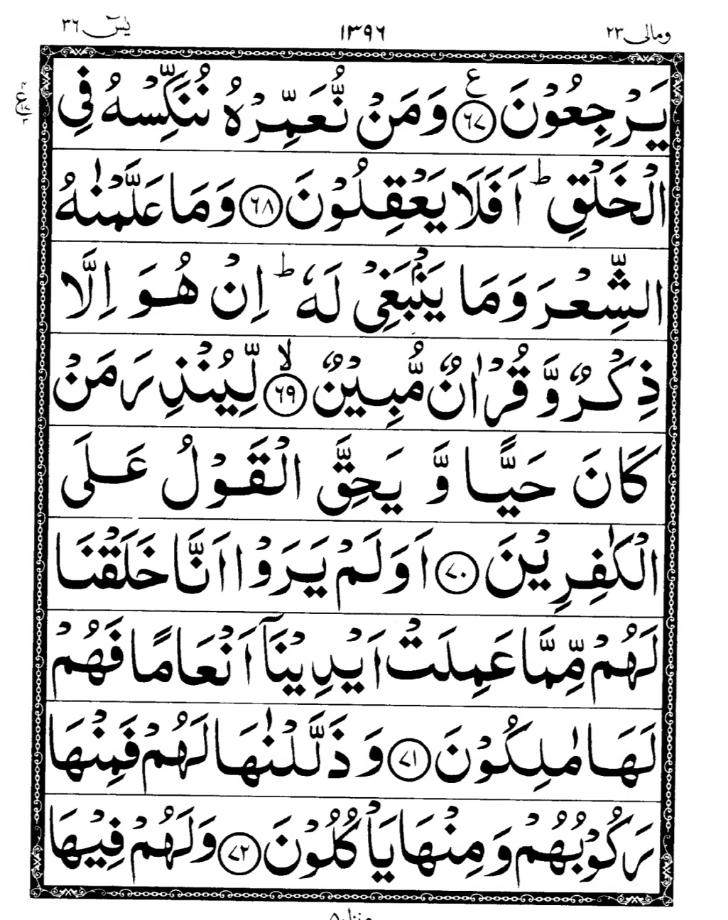 ومالی ۲۳ ۱۳۹۶ یٰسٓ ۳۶
یَرْجِعُوْنَ ﴿۶۷﴾ ع وَمَنْ نُّعَمِّرْهُ نُنَكِّسْهُ فِی
الْخَلْقِ ؕ اَفَلَا یَعْقِلُوْنَ ﴿۶۸﴾ وَمَا عَلَّمْنٰهُ
الشِّعْرَ وَمَا یَنْۢبَغِیْ لَهٗ ؕ اِنْ هُوَ اِلَّا
ذِكْرٌ وَّ قُرْاٰنٌ مُّبِیْنٌ ﴿۶۹﴾ ۙ لِّیُنْذِرَ مَنْ
كَانَ حَیًّا وَّ یَحِقَّ الْقَوْلُ عَلَی
الْكٰفِرِیْنَ ﴿۷۰﴾ اَوَلَمْ یَرَوْا اَنَّا خَلَقْنَا
لَهُمْ مِّمَّا عَمِلَتْ اَیْدِیْنَاۤ اَنْعَامًا فَهُمْ
لَهَا مٰلِكُوْنَ ﴿۷۱﴾ وَ ذَلَّلْنٰهَا لَهُمْ فَمِنْهَا
رَكُوْبُهُمْ وَ مِنْهَا یَاْكُلُوْنَ ﴿۷۲﴾ وَلَهُمْ فِیْهَا